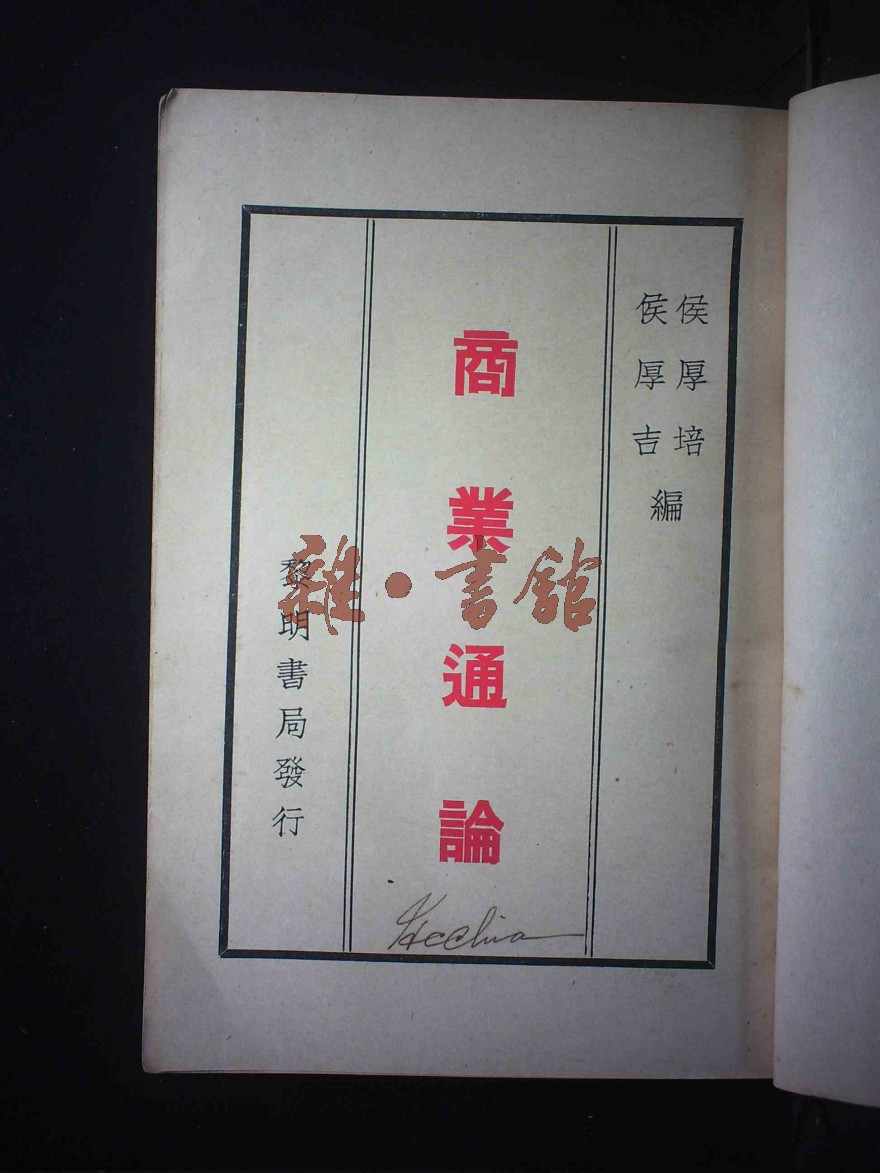 侯厚培
侯厚吉
編
商業通論
黎明書局發行
雜·書館